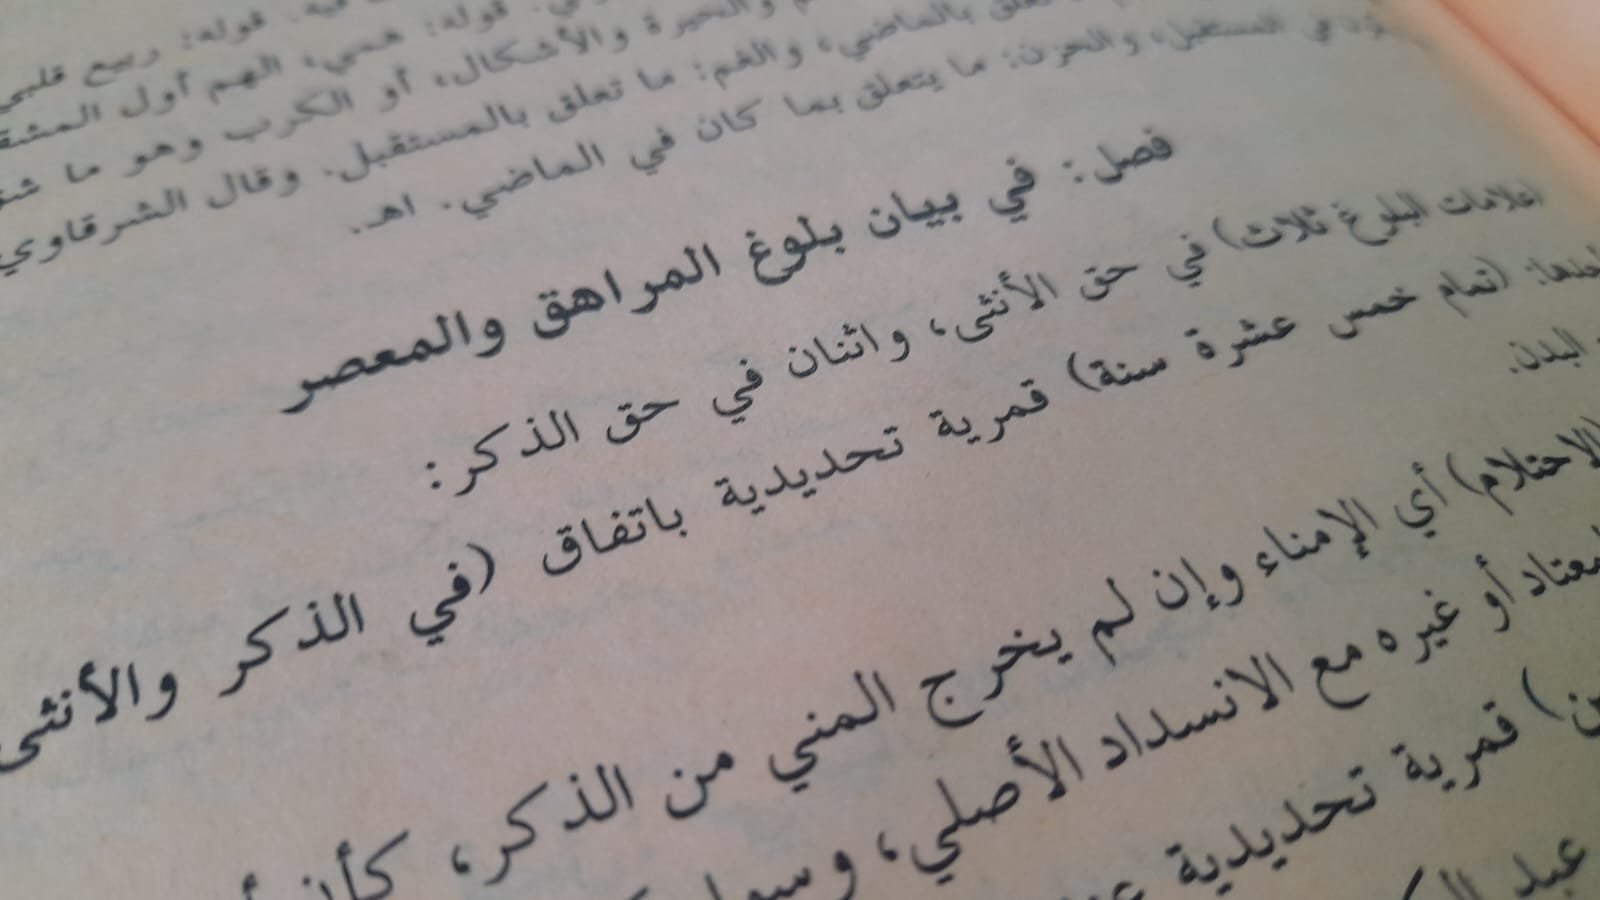 فيه. قوله: ربيع قلبي
قوله: همي، الهم أول المشقة
والحيرة والأشكال، أو الكرب وهو ما شق
تعلق بالماضي، والغم: ما تعلق بالمستقبل. وقال الشرقاوي
في المستقبل، والحزن: ما يتعلق بما كان في الماضي. اهـ.
فصل: في بيان بلوغ المراهق والمعصر
(علامات البلوغ ثلاث) في حق الأنثى، واثنان في حق الذكر:
أحدها: (تمام خمس عشرة سنة) قمرية تحديدية باتفاق (في الذكر والأنثى
البدن.
(الاحتلام) أي الإمناء وإن لم يخرج المني من الذكر، كأن
أو غيره مع الانسداد الأصلي، وسواء
قمرية تحديدية
عبد